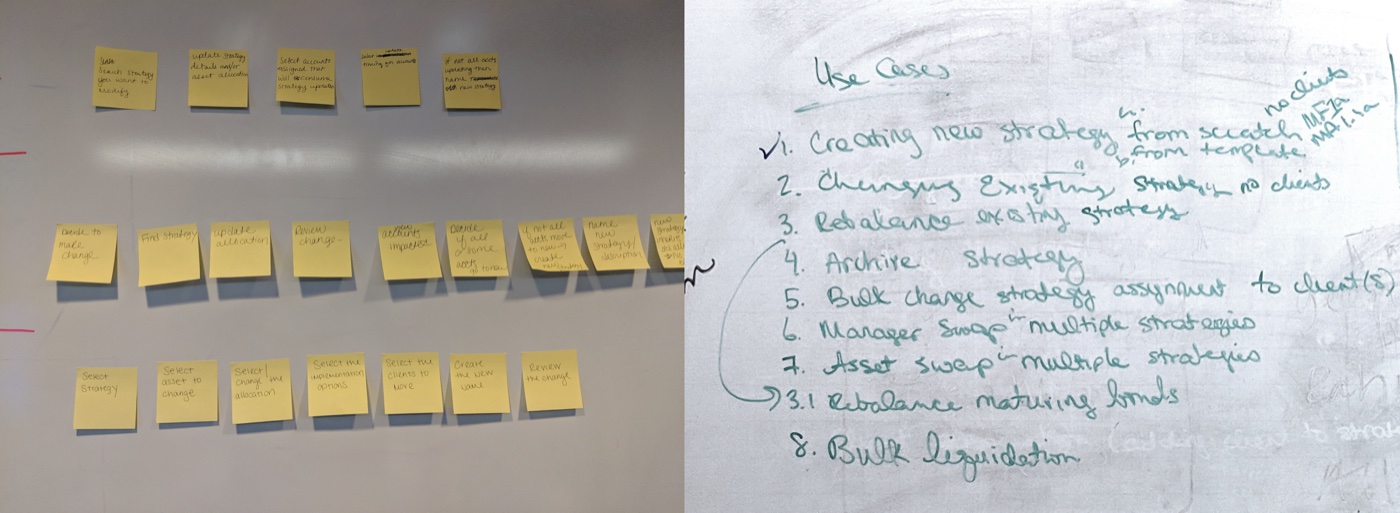 Search strategy
you want to
modify
update strategy
details and/or
asset allocation
Select accounts
assigned that
will
strategy update
If not all accts
updating then
name
new strategy
Decide to
make
change
Find strategy
update
allocation
Review
change
accounts
impacted
Decide
if all
or some
accts
if not all
accts move
to new
create
name
new
strategy/
description
new
strategy
Select
Strategy
Select
asset to
change
Select/
change the
allocation
Select the
implementation
options
Select the
clients to
move
Create
the new
name
Review
the change
Use Cases
no clients
1. Creating new strategy from scratch
b. from template
2. Changing Existing strategy no clients
3. Rebalance existing strategy
4. Archive strategy
5. Bulk change strategy assignment to client(s)
6. Manager Swap in multiple strategies
7. Asset swap in multiple strategies
3.1 Rebalance maturing bonds
8. Bulk liquidation